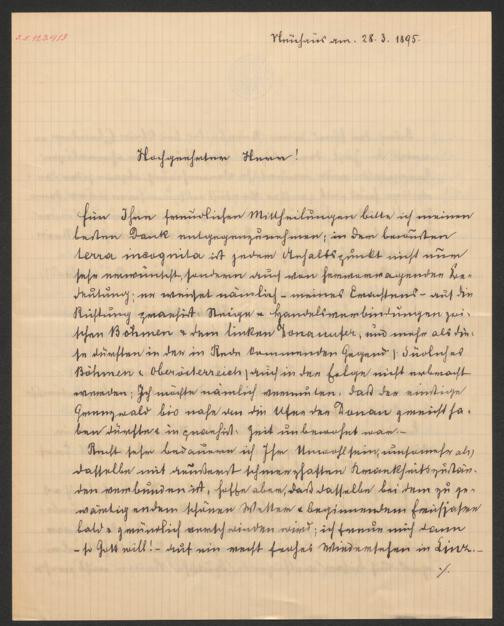 Neuhaus am. 28.3.1895.
Hochgeehrter Herr!
Für Ihre freundlichen Mittheilungen bitte ich meinen
besten Dank entgegenzunehmen; in der bewussten
terra incognita ist jeder Anhaltspunkt nicht nur
sehr erwünscht, sondern auch von hervorragender Be-
deutung; er weiset nämlich – meines Erachtens – auf die
Richtung praehist. Steige & Handelsverbindungen zwi-
schen Böhmen & dem linken Donauufer, und mehr als die-
se dürften in der in Rede kommenden Gegend, südliches
Böhmen & Oberösterreich, auch in der Folge nicht erbracht
werden; Ich möchte nämlich vermuten, dass der einstige
Grenzwald bis nahe an die Ufer der Donau gereicht ha-
ben dürfte & in praehist. Zeit unbewohnt war. –
Recht sehr bedauere ich Ihr Unwohlsein, umsomehr als
dasselbe mit äusserst schmerzhaften Krankheitszustän-
den verbunden ist, hoffe aber, dass dasselbe bei dem zu ge-
wärtigendem schönen Wetter & beginnendem Frühjahre
bald & gründlich verschwinden wird; ich freue mich dann
– so Gott will! – auf ein recht frohes Wiedersehen in Linz. –
./.